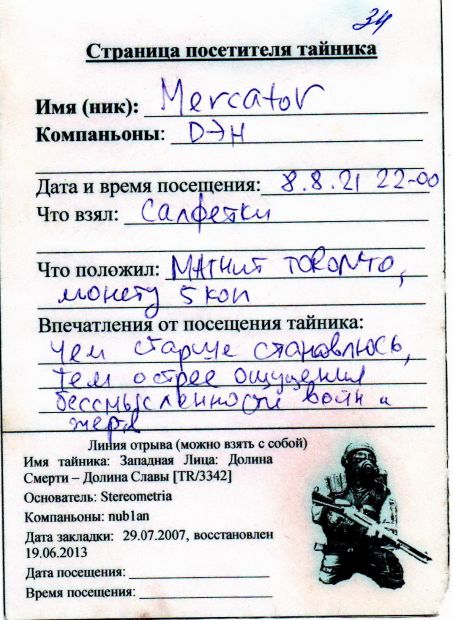 34
Страница посетителя тайника
Имя (ник): Mercator
Компаньоны: DЭН
Дата и время посещения: 8.8.21 22-00
Что взял: Салфетки
Что положил: МАГНИТ TORONTO,
монету 5 коп
Впечатления от посещения тайника:
Чем старше становлюсь,
тем острее ощущения
бессмысленности войн и
жертв
Линия отрыва (можно взять с собой)
Имя тайника: Западная Лица: Долина
Смерти – Долина Славы [TR/3342]
Основатель: Stereometria
Компаньоны: nub1an
Дата закладки: 29.07.2007, восстановлен
19.06.2013
Дата посещения:
Время посещения: